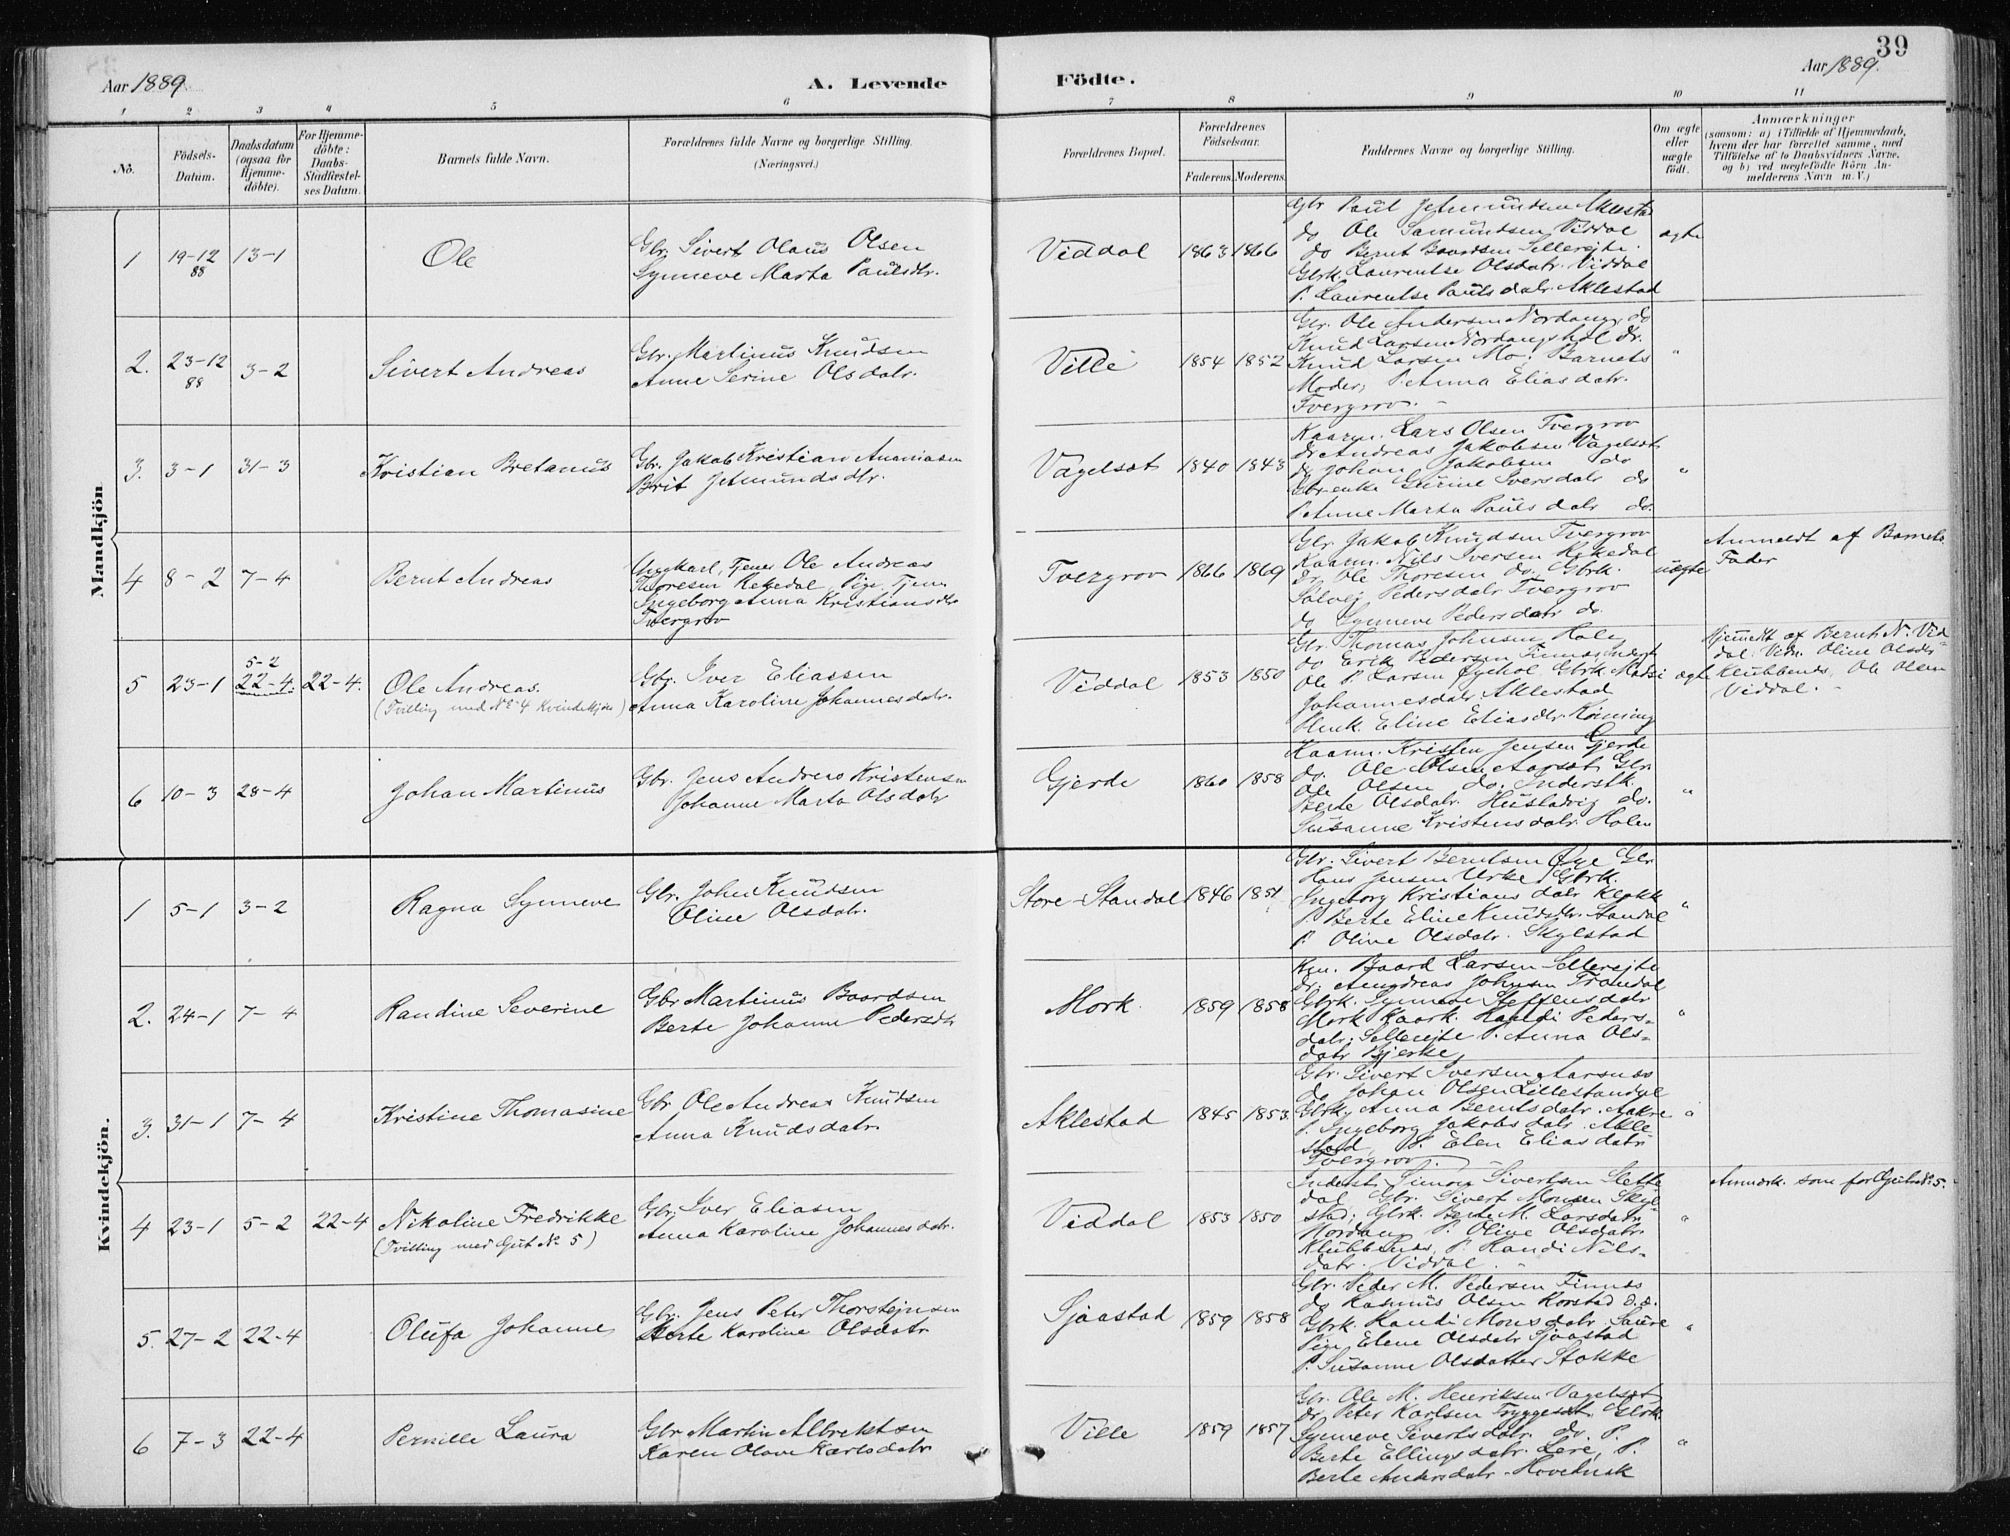 39
Aar 1889
A. Levende Födte.
Aar 1889.
1 2 3 4 5 6 7 8 9 10 11
No.
Födsels-Datum.
Daabsdatum (ogsaa for Hjemme-döbte).
For Hjemme-döbte: Daabs-Stadfæstel-ses Datum.
Barnets fulde Navn.
Forældrenes fulde Navne og borgerlige Stilling. (Næringsvei.)
Forældrenes Bopæl.
Forældrenes Födselsaar.
Faderens. Moderens.
Faddernes Navne og borgerlige Stilling.
Om ægte eller uægte födt.
Anmærkninger
(saasom: a) i Tilfælde af Hjemmedaab, hvem der har forrettet samme, med Tilföielse af to Daabsvidners Navne, og b) ved uægtefödte Börn An-melderens Navn m. V.)
Mandkjön
1 19-12 88 13-1 Ole
Gbr. Sivert Olaus Olsen
Synneve Marta Paulsdtr.
Viddal 1863 1866
Gbr Paul Jetmundsen Aklestad
do Ole Samundsen Viddal
do Bernt Baardsen Sellereite
Gbrk. Laurentse Olsdatr. Viddal
P. Laurentse Paulsdatr. Aklestad
ægte
2. 23-12 88 3-2 Sivert Andreas
Gbr. Martinus Knudsen
Anne Serine Olsdatr.
Ville 1854 1852
Gbr. Ole Andersen Nordang, do
Knud Larsen Nordangshol Gr.
Knud Larsen Mo. Barnets
Moder, P. Anna Eliasdatr.
Tvergrov.
"
3. 3-1 31-3 Kristian Bretanus
Gbr. Jakob Kristian Ananiasen
Brit Jetmundsdtr.
Vagelsæt 1840 1843
Kaarm. Lars Olsen Tvergrov
do Andreas Jakobsen Vagelsæt
do Johan Jakobsen do
Gbrenke Gurine Iversdatr do
P. Anne Marta Paulsdatr do.
"
4 8-2 7-4 Bernt Andreas
Ungkarl, Tjener Ole Andreas
Thoresen Rekedal, Pige Tjen.
Ingeborg Anna Kristiansdtr
Tvergrov
Tvergrov 1866 1869
Gbr. Jakob Knudsen Tvergrov
Kaarm. Nils Iversen Rekedal
do Ole Thoresen do. Gbrk.
Solvei Pedersdatr Tvergrov
do Synneve Pedersdatr do.
uægte
Anmeldt af Barnets
Fader
5 23-1 5-2 22-4. 22-4. Ole Andreas.
(Tvilling med No 4 Kvindekjøn)
Gbr. Iver Eliassen
Anna Karoline Johannesdatr.
Viddal 1853 1850
Gbr. Thomas Johnsen Hole
do Erik Pedersen Finnes, Inderst
Ole P. Larsen Øyehol Gbrk. Madsi
Johannesdatr Aklestad
Eline Eliasdtr
ægt
Hjemdt af Bernt N. Vid
dal. Vidn. Oline Olsdtr
Klubbenes, Ole Olsen
Viddal.
6 10-3 28-4 Johan Martinus
Gbr. Jens Andreas Kristensen
Johanne Marta Olsdatr
Gjerde 1860 1858
Kaarm. Kristen Jensen Gjerde
do. Ole Olsen Aarsæt, Gbr.
Ole Olsen do. Inderstk.
Berte Olsdatr. Hustadvig do.
Susanne Kristensdatr. Holen
"
Kvindekjön.
1 5-1 3-2 Ragna Synneve
Gbr. John Knudsen
Oline Olsdatr.
Store-Standal 1846 1851
Gbr. Sivert Berntsen Øye Gbr
Hans Jensen Urke, Gbrk.
Ingeborg Kristiansdatr Klokk
P. Berte Eline Knudsdtr. Standal
P. Oline Olsdatr. Skylstad
"
2. 24-1 7-4 Randine Severine
Gbr Martinus Baardsen
Berte Johanne Pedersdtr
Mork. 1859 1858
Km. Baard Larsen Sellereite
do. Andreas Johnsen Trandal
Gbrk. Synneve Steffensdatr
Mork Kaark. Randi Peders-
datr. Sellereite P. Anna Ols-
datr Bjerke
"
3. 31-1 7-4 Kristine Thomasine
Gbr Ole Andreas Knudsen
Anna Knudsdatr.
Aklestad 1845 1853.
Gbr. Sivert Iversen Aarsnes
do Johan Olsen Lillestandal
Gbrk. Anna Berntsdatr. Aakre
P. Ingeborg Jakobsdatr. Akle
stad, P. Elen Eliasdatr
Tvergrov.
"
4 23-1 5-2 22-4 Nikoline Fredrikke
(Tvilling med Gut No 5)
Gbr. Iver Eliasen
Anna Karoline Johannesdatr.
Viddal 1853 1850
Inderst. Simon Sivertsen Slette
dal Gbr. Sivert Monsen Skyl
stad; Gbrk. Berte M. Larsdatr
Nordang P. Oline Olsdatr.
Klubbenes, P. Randi Nils-
datr. Viddal.
"
Anmærk. som for Gut No 5.
5. 27-2 22-4 Olufa Johanne
Gbr. Jens Peter Thorstejnsen
Berte Karoline Olsdatr
Sjaastad 1859 1858
Gbr. Peder M. Pedersen Finnes
do Rasmus Olsen Korstad d.d.
Gbrk. Randi Monsdatr. Saure
Pige Elene Olsdatr Sjaastad
P. Susanne Olsdatter Stokke
"
6 7-3 22-4 Pernille Laura
Gbr Martin Albrektsen
Karen Olave Karlsdatr
Ville 1859 1857
Gbr. Ole M. Henriksen Vagelsæt
do Peter Karlsen Tryggeset. Gbrk.
Synneve Sivertsdatr. do. P.
Berte Ellingsdatr. Lere, P.
Berte Andersdatr.
"